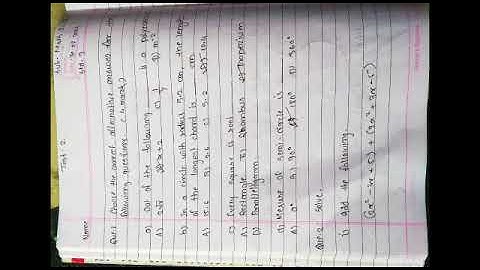 Sub-Math
Std. 9
Test 2
Name
Que:1 Choose the correct alternative answer for the
following questions. (4 mark)
a) out of the following is a polynomial
b) In a circle with radius 5.2 cm, the length
of the longest chord is cm
A) 15.6 B) 2.6 C) 5.2 D) 10.4
c) Every square is a
A) Rectangle B) Rhombus C) Trapezium
D) Parallelogram
d) Measure of semi-circle is
A) 0° B) 90° C) 180° D) 360°
Que:2 Solve.
i) add the following